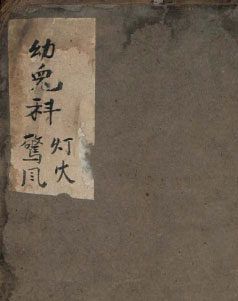 幼兒科
驚风
灯火